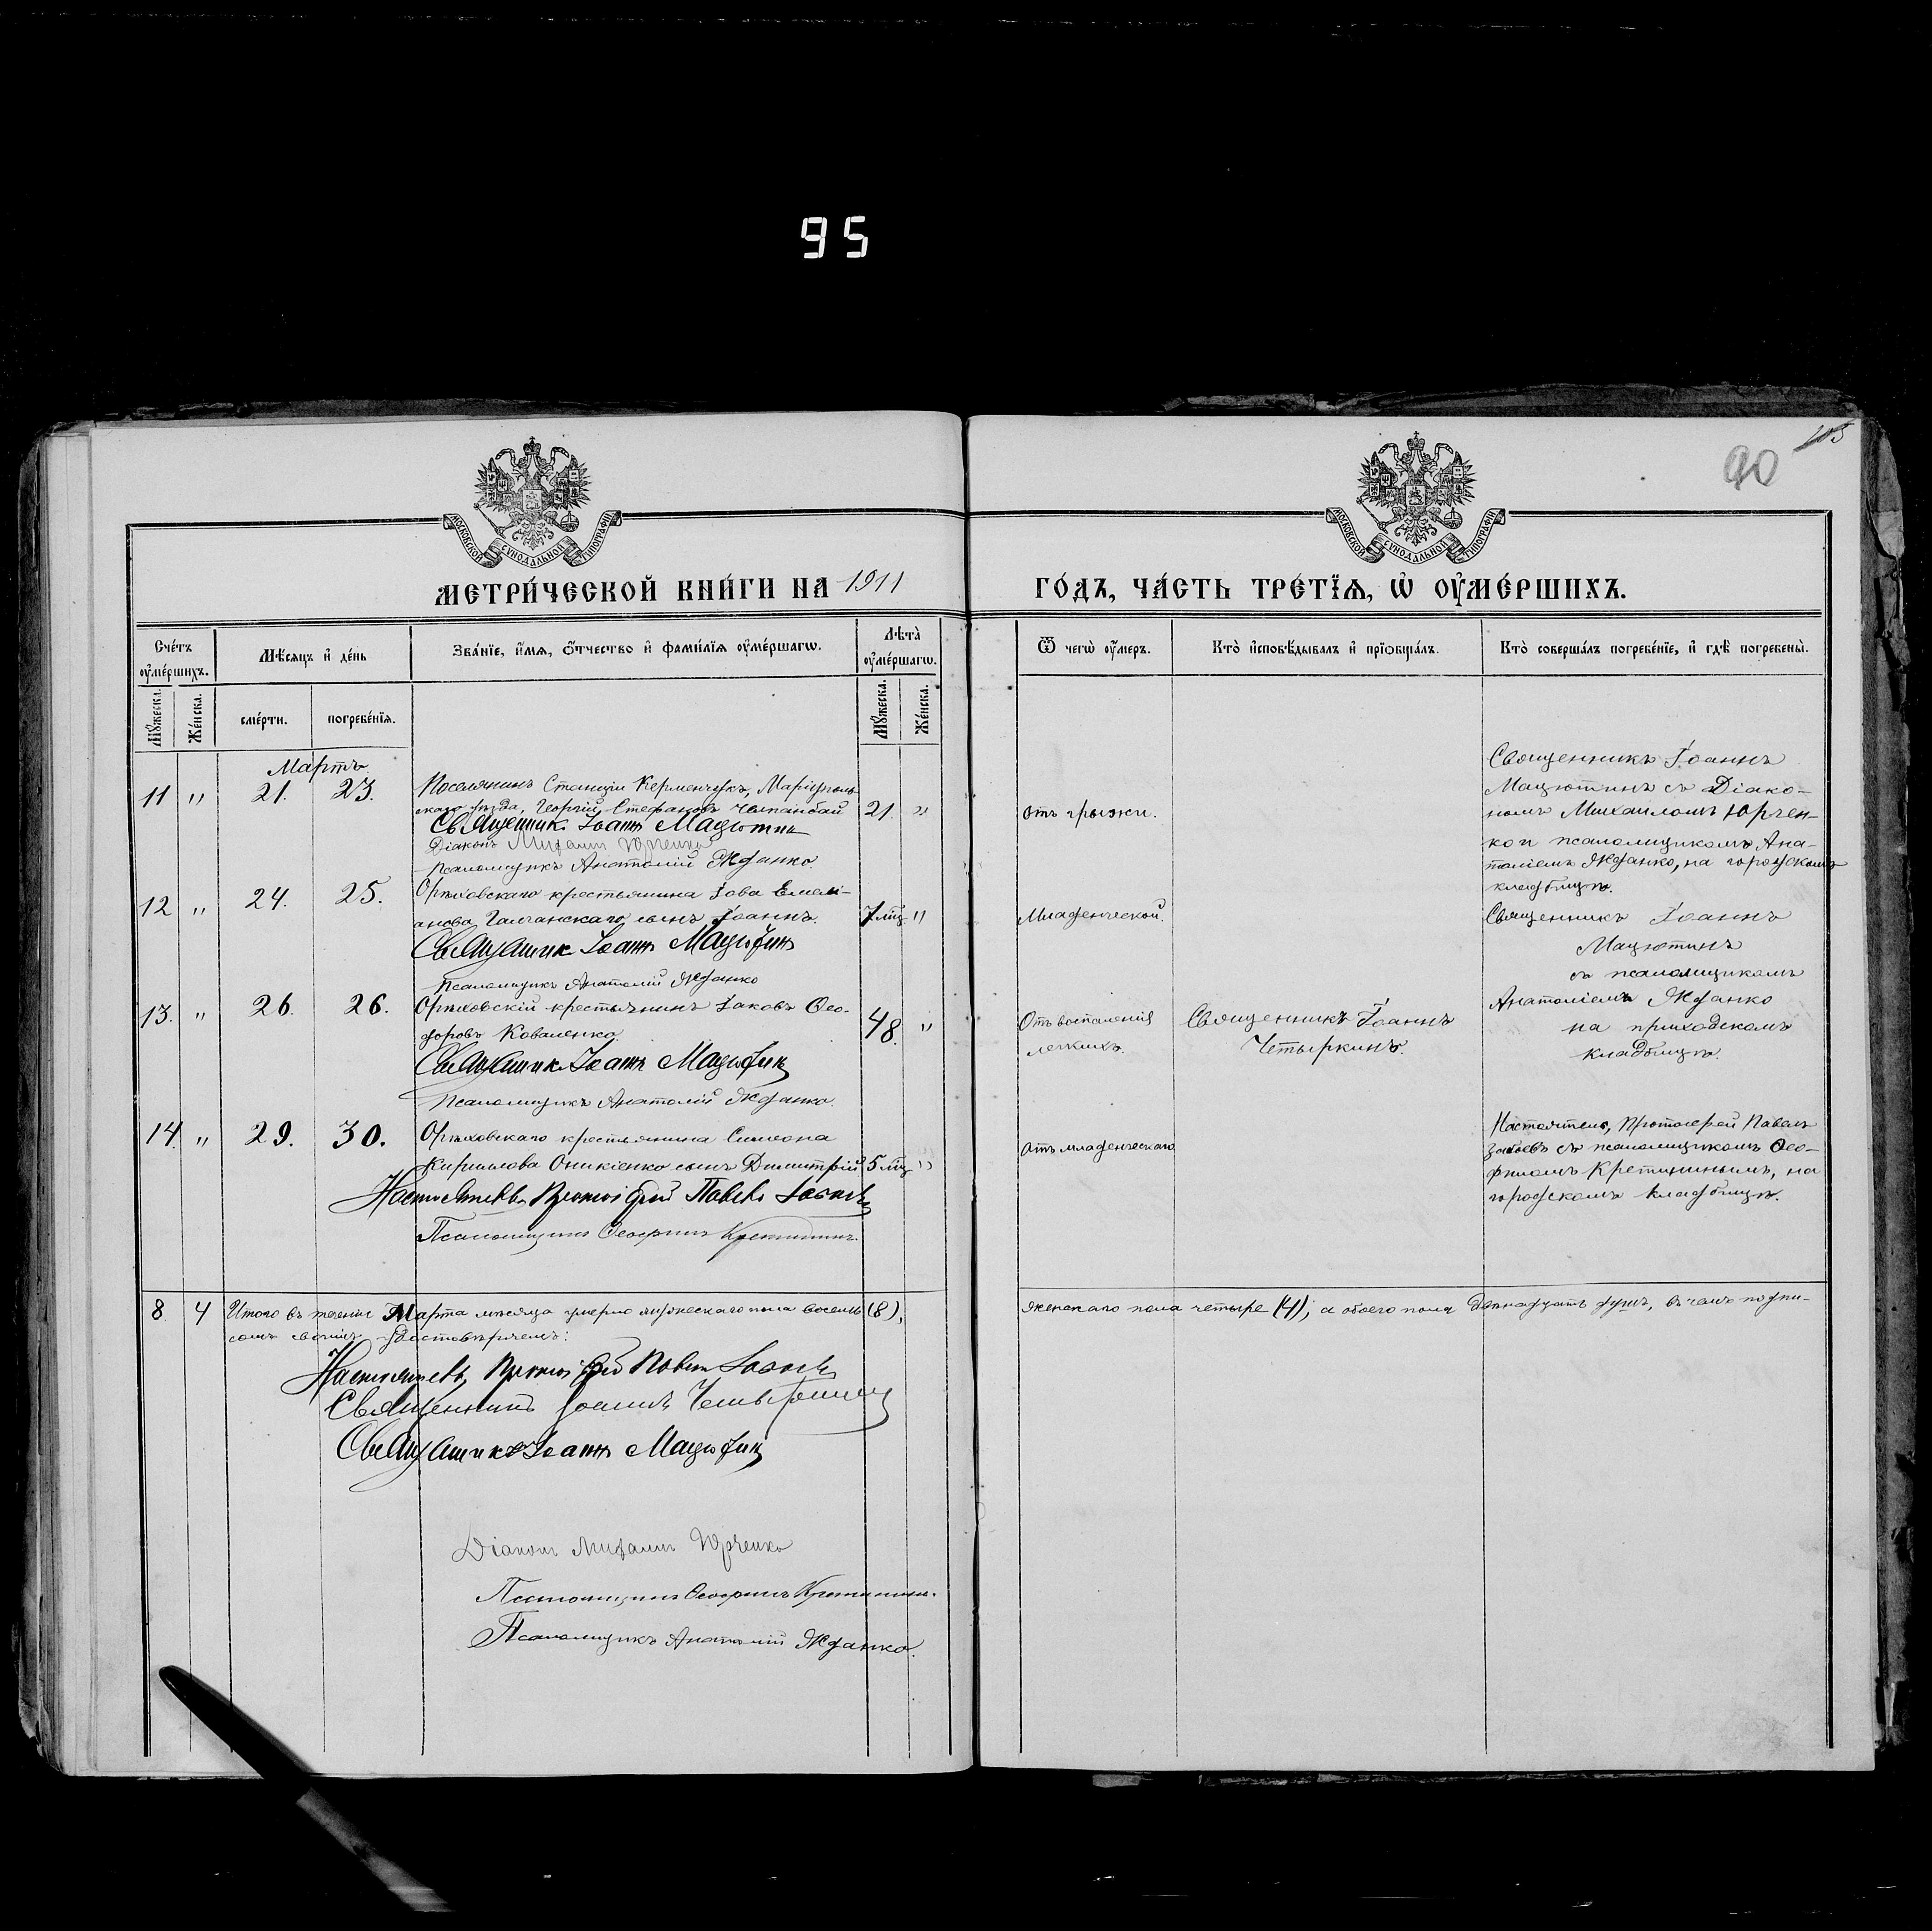 95
90
МОСКОВСКОЙ СѴНОДАЛЬНОЙ ТИПОГРАФІИ
МОСКОВСКОЙ СѴНОДАЛЬНОЙ ТИПОГРАФІИ
МЕТРИ́ЧЕСКОЙ КНИ́ГИ НА 1911 ГО́ДЪ, ЧА́СТЬ ТРЕ́ТЇѦ, Ѡ҆ ОУ҆МЕ́РШИХЪ.
Сче́тъ оу҆ме́ршихъ.
Мѣ́сяцъ и҆ де́нь
Зва́нїе, и҆́мѧ, ѻ҆́тчество и҆ фами́лїѧ оу҆ме́ршагѡ.
Лѣта̀ оу҆ме́ршагѡ.
Ѿ чегѡ̀ оу҆́меръ.
Кто̀ и҆сповѣ́дывалъ и҆ прїѡбща́лъ.
Кто̀ соверша́лъ погребе́нїе, и҆ гдѣ̀ погребены̀.
Мꙋ́жеска.
Же́нска.
сме́рти.
погребе́нїѧ.
Мꙋ́жеска.
Же́нска.
Мартъ.
11 " 21. 23.
Поселянинъ Станціи Керменчукъ, Маріуполь-
скаго уѣзда, Георгій Стефановъ
21. "
Священник Іоанн Мацютин
Діаконъ Михаилъ Юрченко
Псаломщикъ Анатолій Жданко
отъ грыжи.
Священникъ Іоаннъ
Мацютинъ съ Діако-
номъ Михаиломъ Юрчен-
ко и псаломщикомъ Ана-
толіемъ Жданко, на городскомъ
кладбищѣ.
12 " 24. 25.
Орѣховскаго крестьянина Іова Емелі-
анова Галчанскаго сынъ Іоаннъ.
7 мц. "
Священник Іоанн Мацютин
Псаломщикъ Анатолій Жданко
Младенческой.
Священникъ Іоаннъ
Мацютинъ
съ псаломщикомъ
Анатоліемъ Жданко
на приходскомъ
кладбищѣ.
13. " 26. 26.
Орѣховскій крестьянинъ Іаковъ Ѳео-
доровъ Коваленко.
48. "
Священник Іоанн Мацютин
Псаломщикъ Анатолій Жданко.
Отъ воспаленія
легкихъ.
Священникъ Іоаннъ
Четыркинъ.
14. " 29. 30.
Орѣховскаго крестьянина Симеона
Кириллова Оникіенко сынъ Димитрій
5 мц. "
Настоятель Протоіерей Павелъ
Псаломщикъ Ѳеофилъ Кретининъ.
отъ младенческаго
Настоятель, Протоіерей Павелъ
съ псаломщикомъ Ѳео-
филомъ Кретининымъ, на
городскомъ кладбищѣ.
8. 4 Итого въ теченіе Марта мѣсяца умерло мужескаго пола восемь (8), женскаго пола четыре (4), а обоего пола двѣнадцать душъ, въ чемъ подпи-
сомъ своимъ удостовѣряемъ:
Настоятель Протоіерей Павелъ
Священникъ Іоаннъ Четыркинъ
Священник Іоанн Мацютин
Діаконъ Михаилъ Юрченко
Псаломщикъ Ѳеофилъ Кретининъ.
Псаломщикъ Анатолій Жданко.